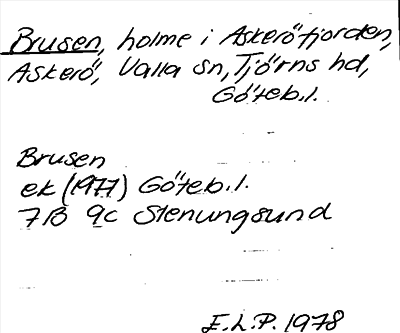 Brusen, holme i Askeröfjorden,
Askerö, Valla sn, Tjörns hd,
Göteb.l.
Brusen
ek (1977) Göteb.l.
7B 9c Stenungsund
E.L.P. 1978